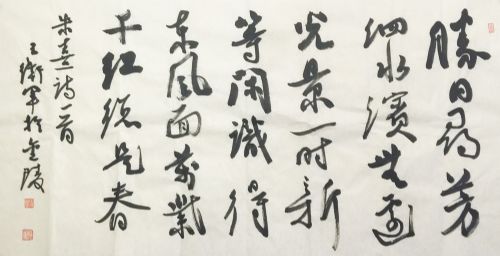 勝日尋芳
泗水濱無邊
光景一時新
等閑識得
東風面萬紫
千紅總是春
朱熹詩一首
王衛軍於金陵